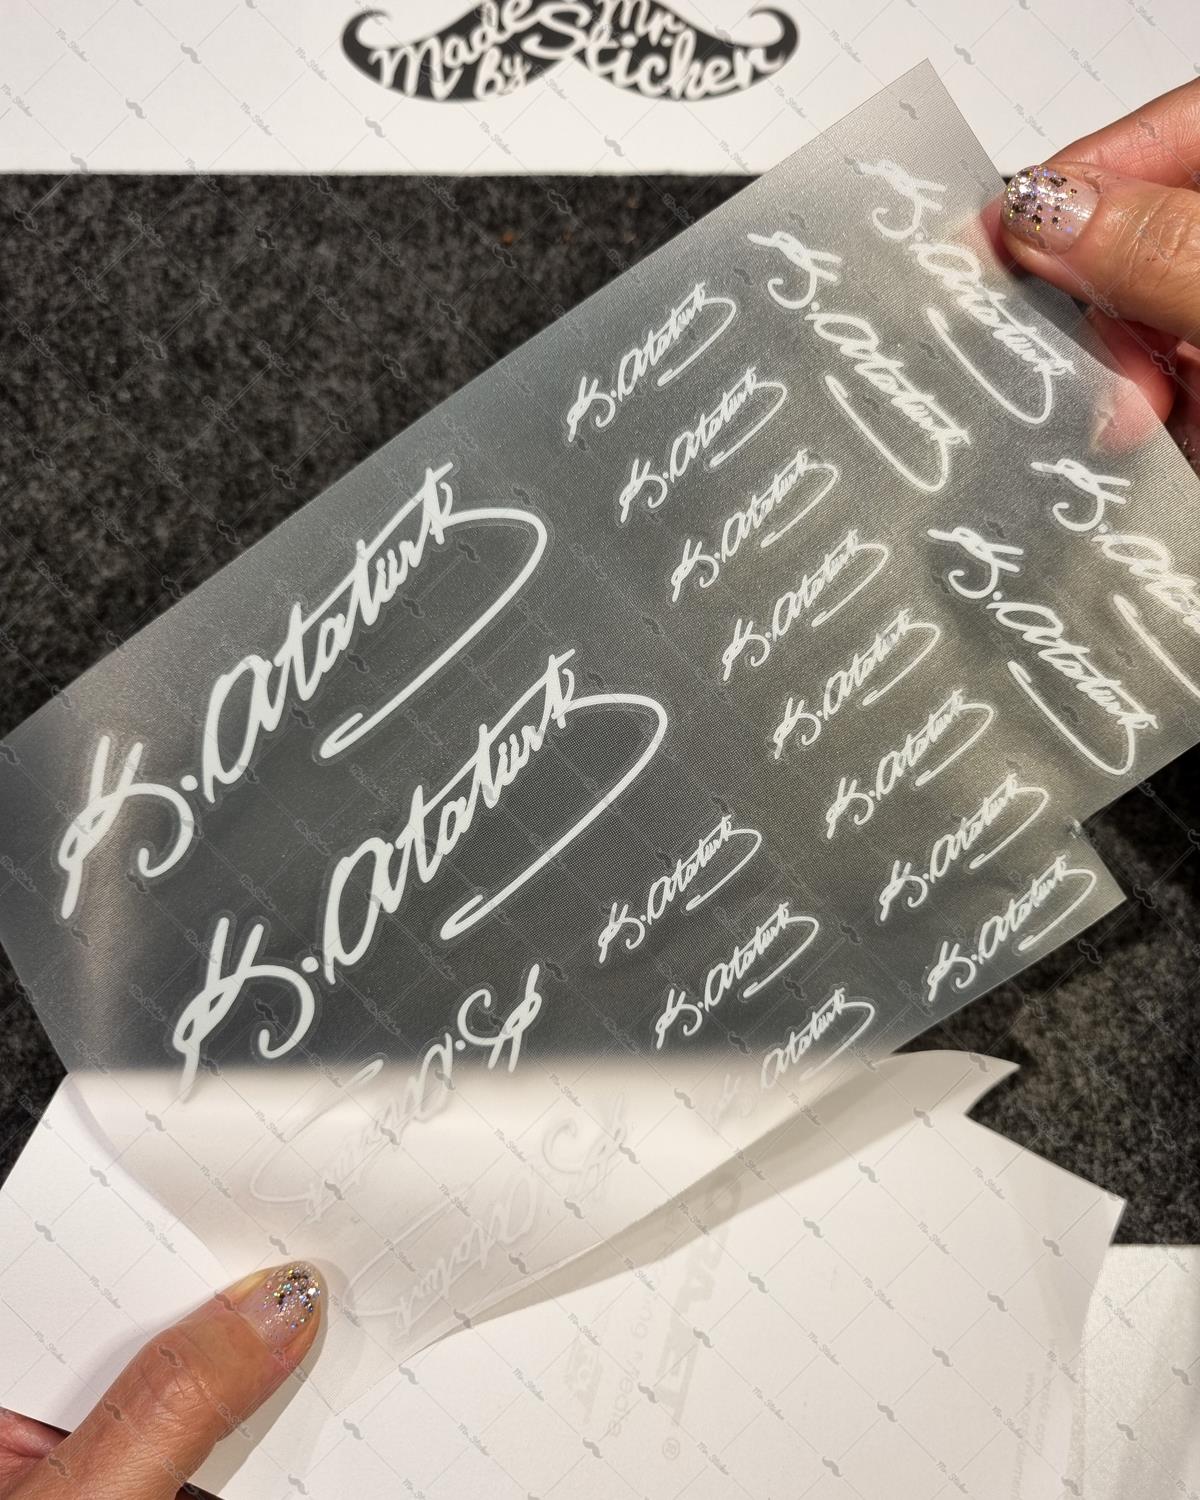 Made Mr.
by Sticker
K. Atatürk
K. Atatürk
K. Atatürk
K. Atatürk
K. Atatürk
K. Atatürk
K. Atatürk
K. Atatürk
K. Atatürk
K. Atatürk
K. Atatürk
K. Atatürk
K. Atatürk
K. Atatürk
K. Atatürk
K. Atatürk
K. Atatürk
Atatürk
K. Atatürk
K. Atatürk
Mr. Sticker